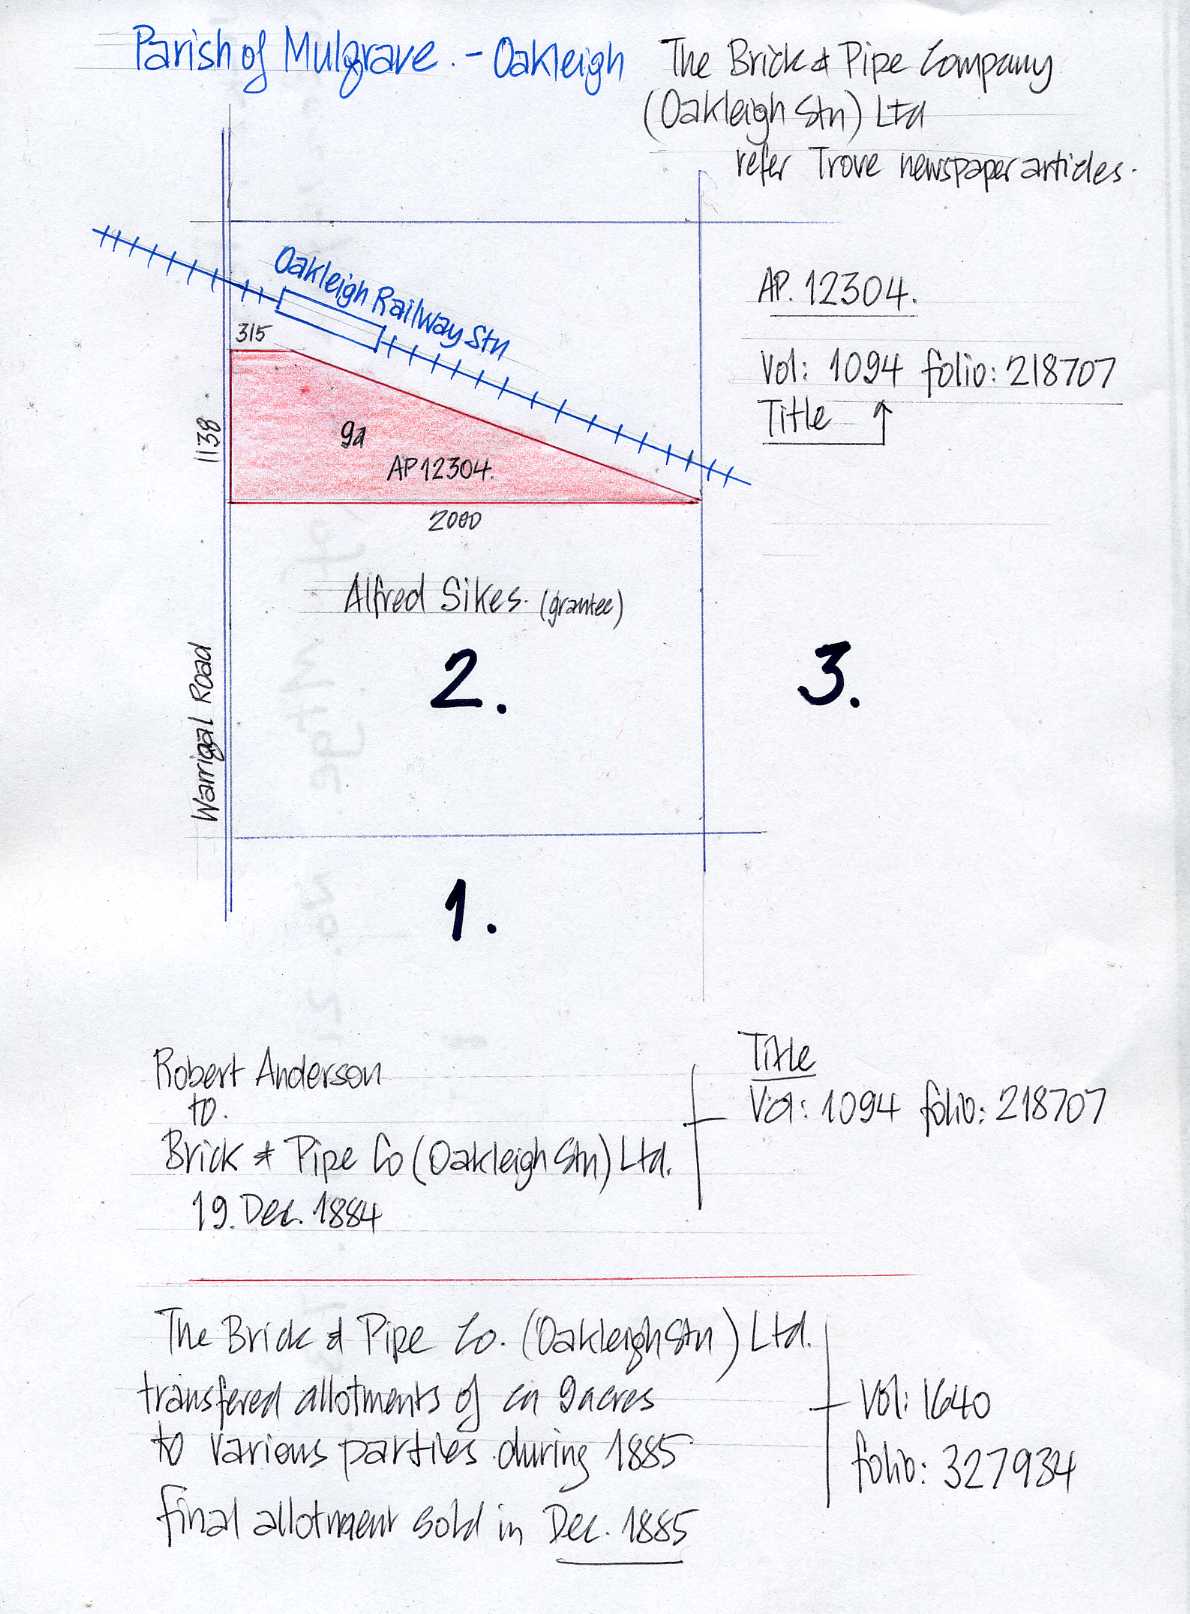 Parish of Mulgrave. - Oakleigh
The Brick & Pipe Company
(Oakleigh Stn) Ltd
refer Trove newspaper articles.
Oakleigh Railway Stn
AP. 12304.
315
Vol: 1094 folio: 218707
Title
1138
9a
AP 12304.
2000
Alfred Sikes. (grantee)
2.
3.
Warrigal Road
1.
Robert Anderson
to.
Brick & Pipe Co (Oakleigh Stn) Ltd.
19. Dec. 1884
Title
Vol: 1094 folio: 218707
The Brick & Pipe Co. (Oakleigh Stn) Ltd.
transfered allotments of ca 9 acres
to various parties during 1885
final allotment sold in Dec. 1885
Vol: 1640
folio: 327934